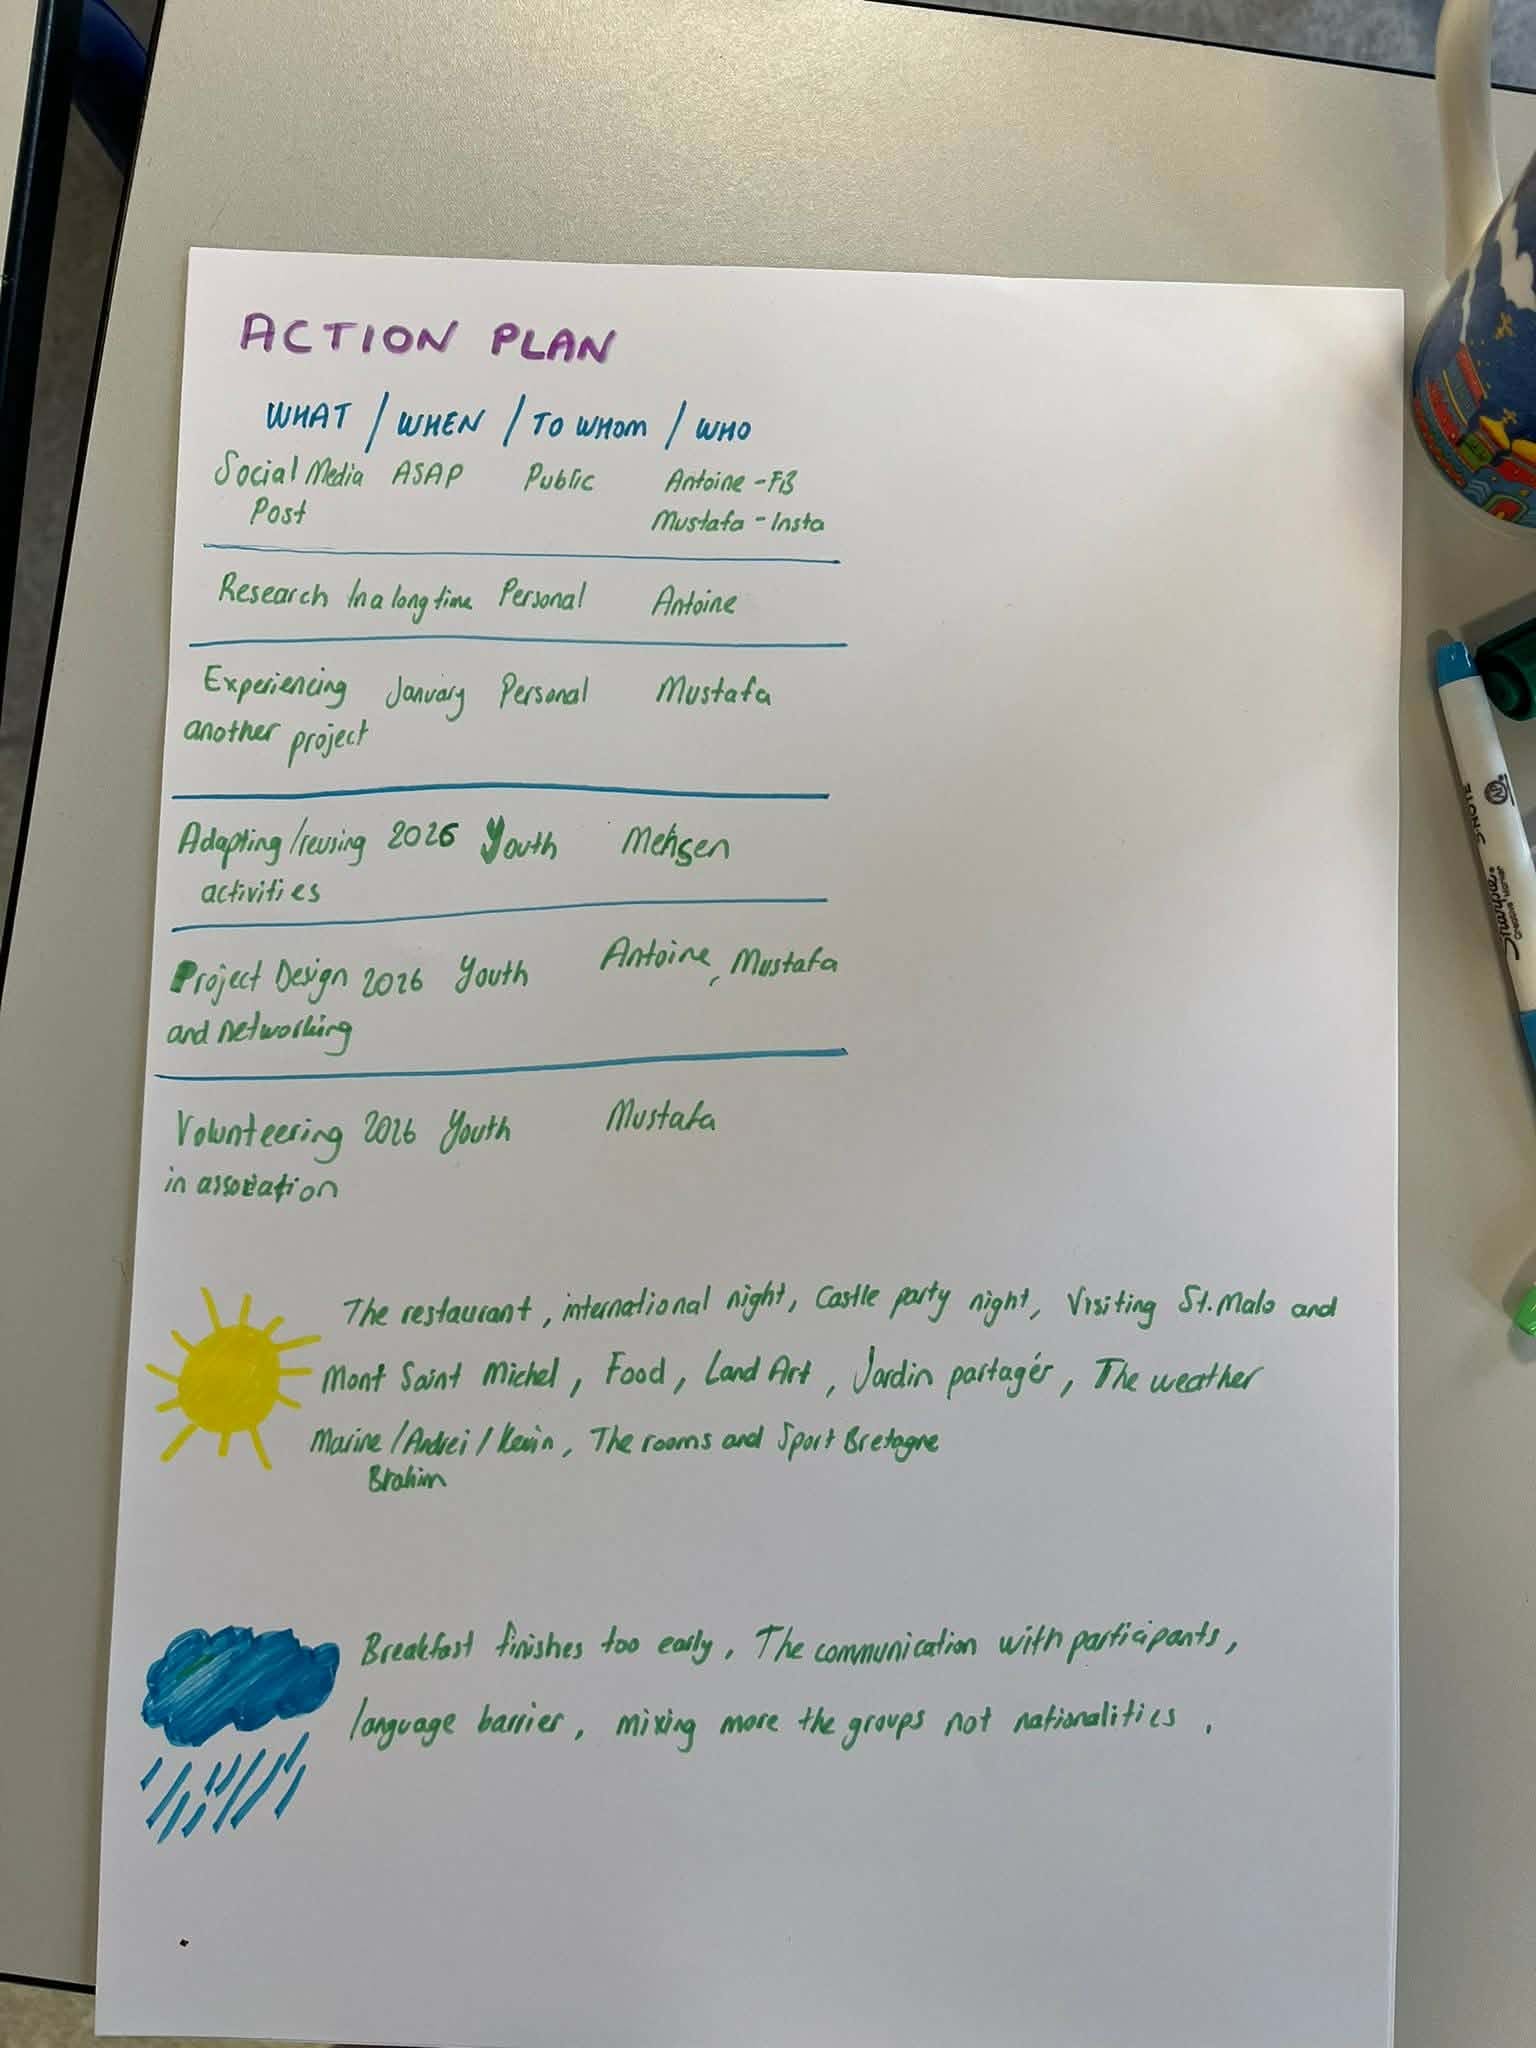 ACTION PLAN
WHAT / WHEN / TO WHOM / WHO
Social Media ASAP Public Antoine - FB
Post Mustafa - Insta
Research In a long time Personal Antoine
Experiencing January Personal Mustafa
another project
Adapting /reusing 2026 Youth Mehsen
activities
Project Design 2026 Youth Antoine, Mustafa
and networking
Volunteering 2026 Youth Mustafa
in association
The restaurant, international night, Castle party night, Visiting St. Malo and
Mont Saint Michel, Food, Land Art, Jardin partagér, The weather
Marine / Andrei / Kevin, The rooms and Sport Bretagne
Brahim
Breakfast finishes too early, The communication with participants,
language barrier, mixing more the groups not nationalities.
S·NOTE
Sharpie
Creative Marker